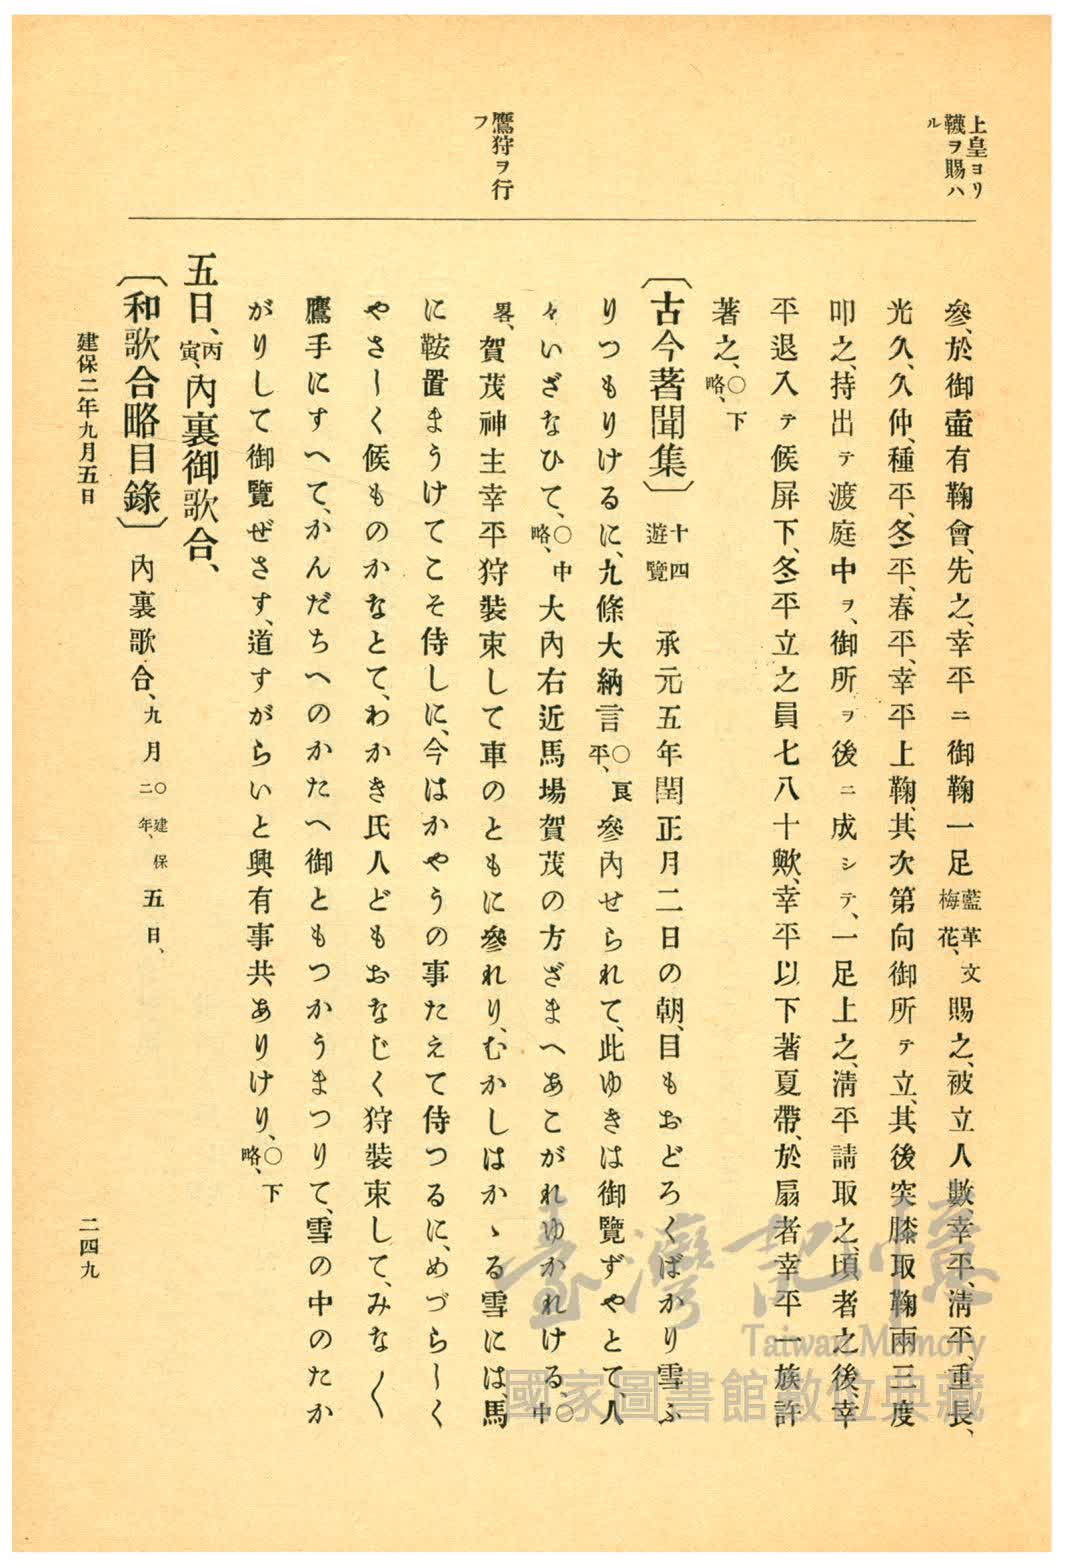 上皇ヨリ
韈ヲ賜ハ
ル
鷹狩ヲ行
フ
參、於御壷有鞠會、先之、幸平ニ御鞠一足藍革文梅花、賜之、被立人數、幸平、淸平、重長、
光久、久仲、種平、冬平、春平、幸平上鞠、其次第向御所テ立、其後突膝取鞠兩三度
叩之、持出テ渡庭中ヲ、御所ヲ後ニ成シテ、一足上之、淸平請取之、頃者之後、幸
平退入テ候屏下、冬平立之員七八十歟、幸平以下著夏帶、於扇者幸平一族許
著之、〇下略、
〔古今著聞集〕十四遊覽 承元五年閏正月二日の朝、目もおどろくばかり雪ふ
りつもりけるに、九條大納言〇良平、參內せられて、此ゆきは御覽ずやとて、人
々いざなひて、〇中略、大內右近馬場賀茂の方ざまへあこがれゆかれける、〇中
畧、賀茂神主幸平狩裝束して車のともに參れり、むかしはかゝる雪には、馬
に鞍置まうけてこそ侍しに、今はかやうの事たえて侍つるに、めづらしく
やさしく候ものかなとて、わかき氏人どもおなじく狩裝束して、みな〱
鷹手にすへて、かんだちへのかたへ御ともつかうまつりて、雪の中のたか
がりして御覽ぜさす、道すがらいと興有事共ありけり、〇下略、
五日、丙寅、內裏御歌合、
〔和歌合略目錄〕 內裏歌合、九月〇建保二年、五日、
建保二年九月五日
二四九
臺灣記憶
Taiwan Memory
國家圖書館數位典藏